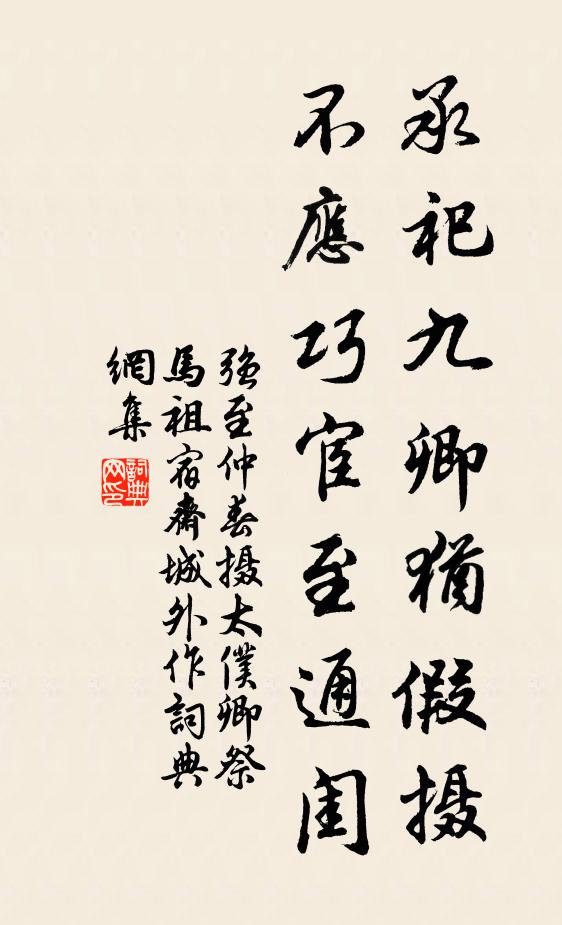 承祀九卿猶假摄
不應巧宦至通闺
强至仲春摄太僕卿祭
馬祖宿齋城外作詞典
網集
詞典网印